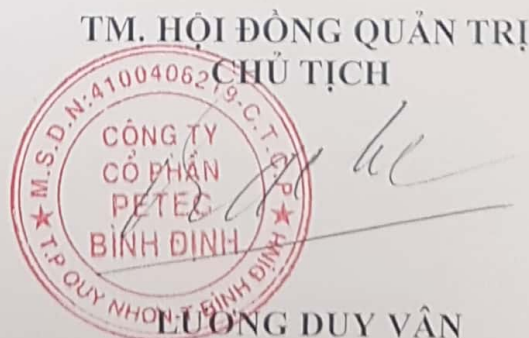 TM. HỘI ĐỒNG QUẢN TRỊ
CHỦ TỊCH
M.S.D.N:4100406219-C.T.C.P
CÔNG TY
CỔ PHẦN
PETEC
BÌNH ĐỊNH
T.P QUY NHƠN-T.BÌNH ĐỊNH
LƯƠNG DUY VÂN